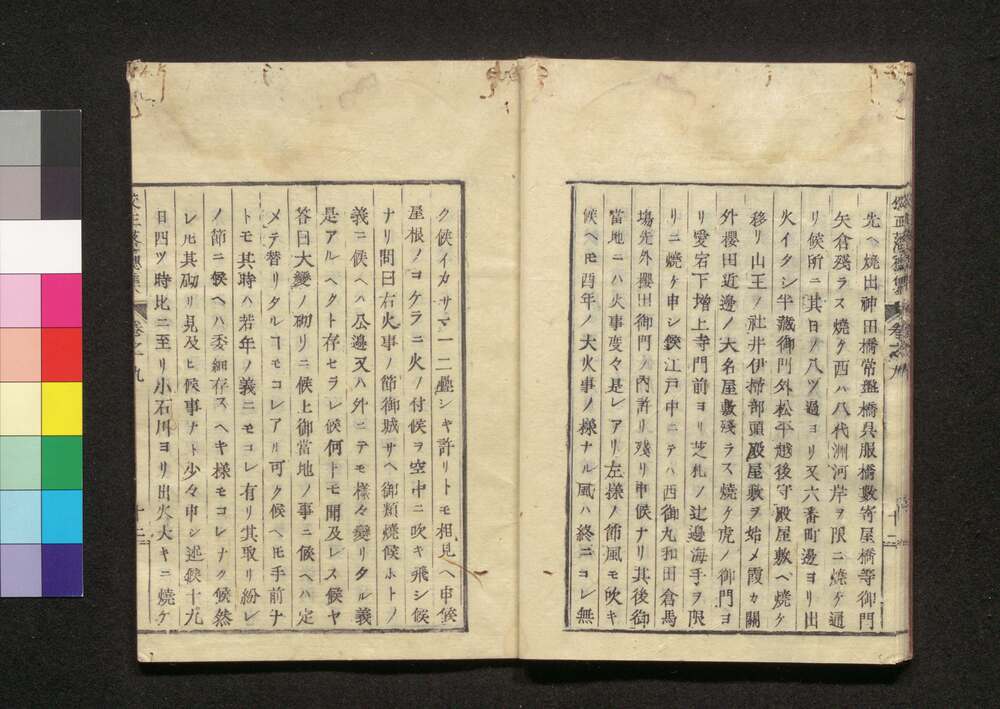 先ヘ燒出神田橋常盤橋呉服橋數寄屋橋等御門
矢倉殘ラス燒ケ西ハ八代洲河岸ヲ限ニ燒ケ通
リ候所ニ其日ノ八ツ過ヨリ又六番町邊ヨリ出
火イタシ半藏御門外松平越後守殿屋敷ヘ燒ケ
移リ山王ノ社井伊掃部頭殿屋敷ヲ始メ霞カ關
外櫻田近邊ノ大名屋敷殘ラス燒ケ虎ノ御門ヨ
リ愛宕下增上寺門前ヨリ芝札ノ辻邊海手ヲ限
リニ燒ケ申シ候江戸中ニテハ西御丸和田倉馬
塲先外櫻田御門ノ內許リ殘リ申候ナリ其後御
當地ニハ火事度々是レアリ左樣ノ節風モ吹キ
候ヘモ酉年ノ大火事ノ樣ナル風ハ終ニコレ無
ク候イカサマ一二疊シキ許リトモ相見ヘ申候
屋根ノコケラニ火ノ付候ヲ空中ニ吹キ飛シ候
ナリ問曰右火事ノ節御城サヘ御類燒候ホトノ
義ニ候ヘハ公邊又ハ外ニテモ樣々變リタル義
是アルヘクト存セラレ候何トモ聞及レス候ヤ
答曰大變ノ砌リニ候上御當地ノ事ニ候ヘハ定
メテ替リタルコモコレアル可ク候ヘモ手前ナ
トモ其時ハ若年ノ義ニモコレ有リ其取リ紛レ
ノ節ニ候ヘハ委細存スヘキ樣モコレナク候然
レ𪜈其砌リ見及ヒ候事ナト少々申シ述候十九
日四ツ時比ニ至リ小石川ヨリ出火大キニ燒ケ
卷之九
十二